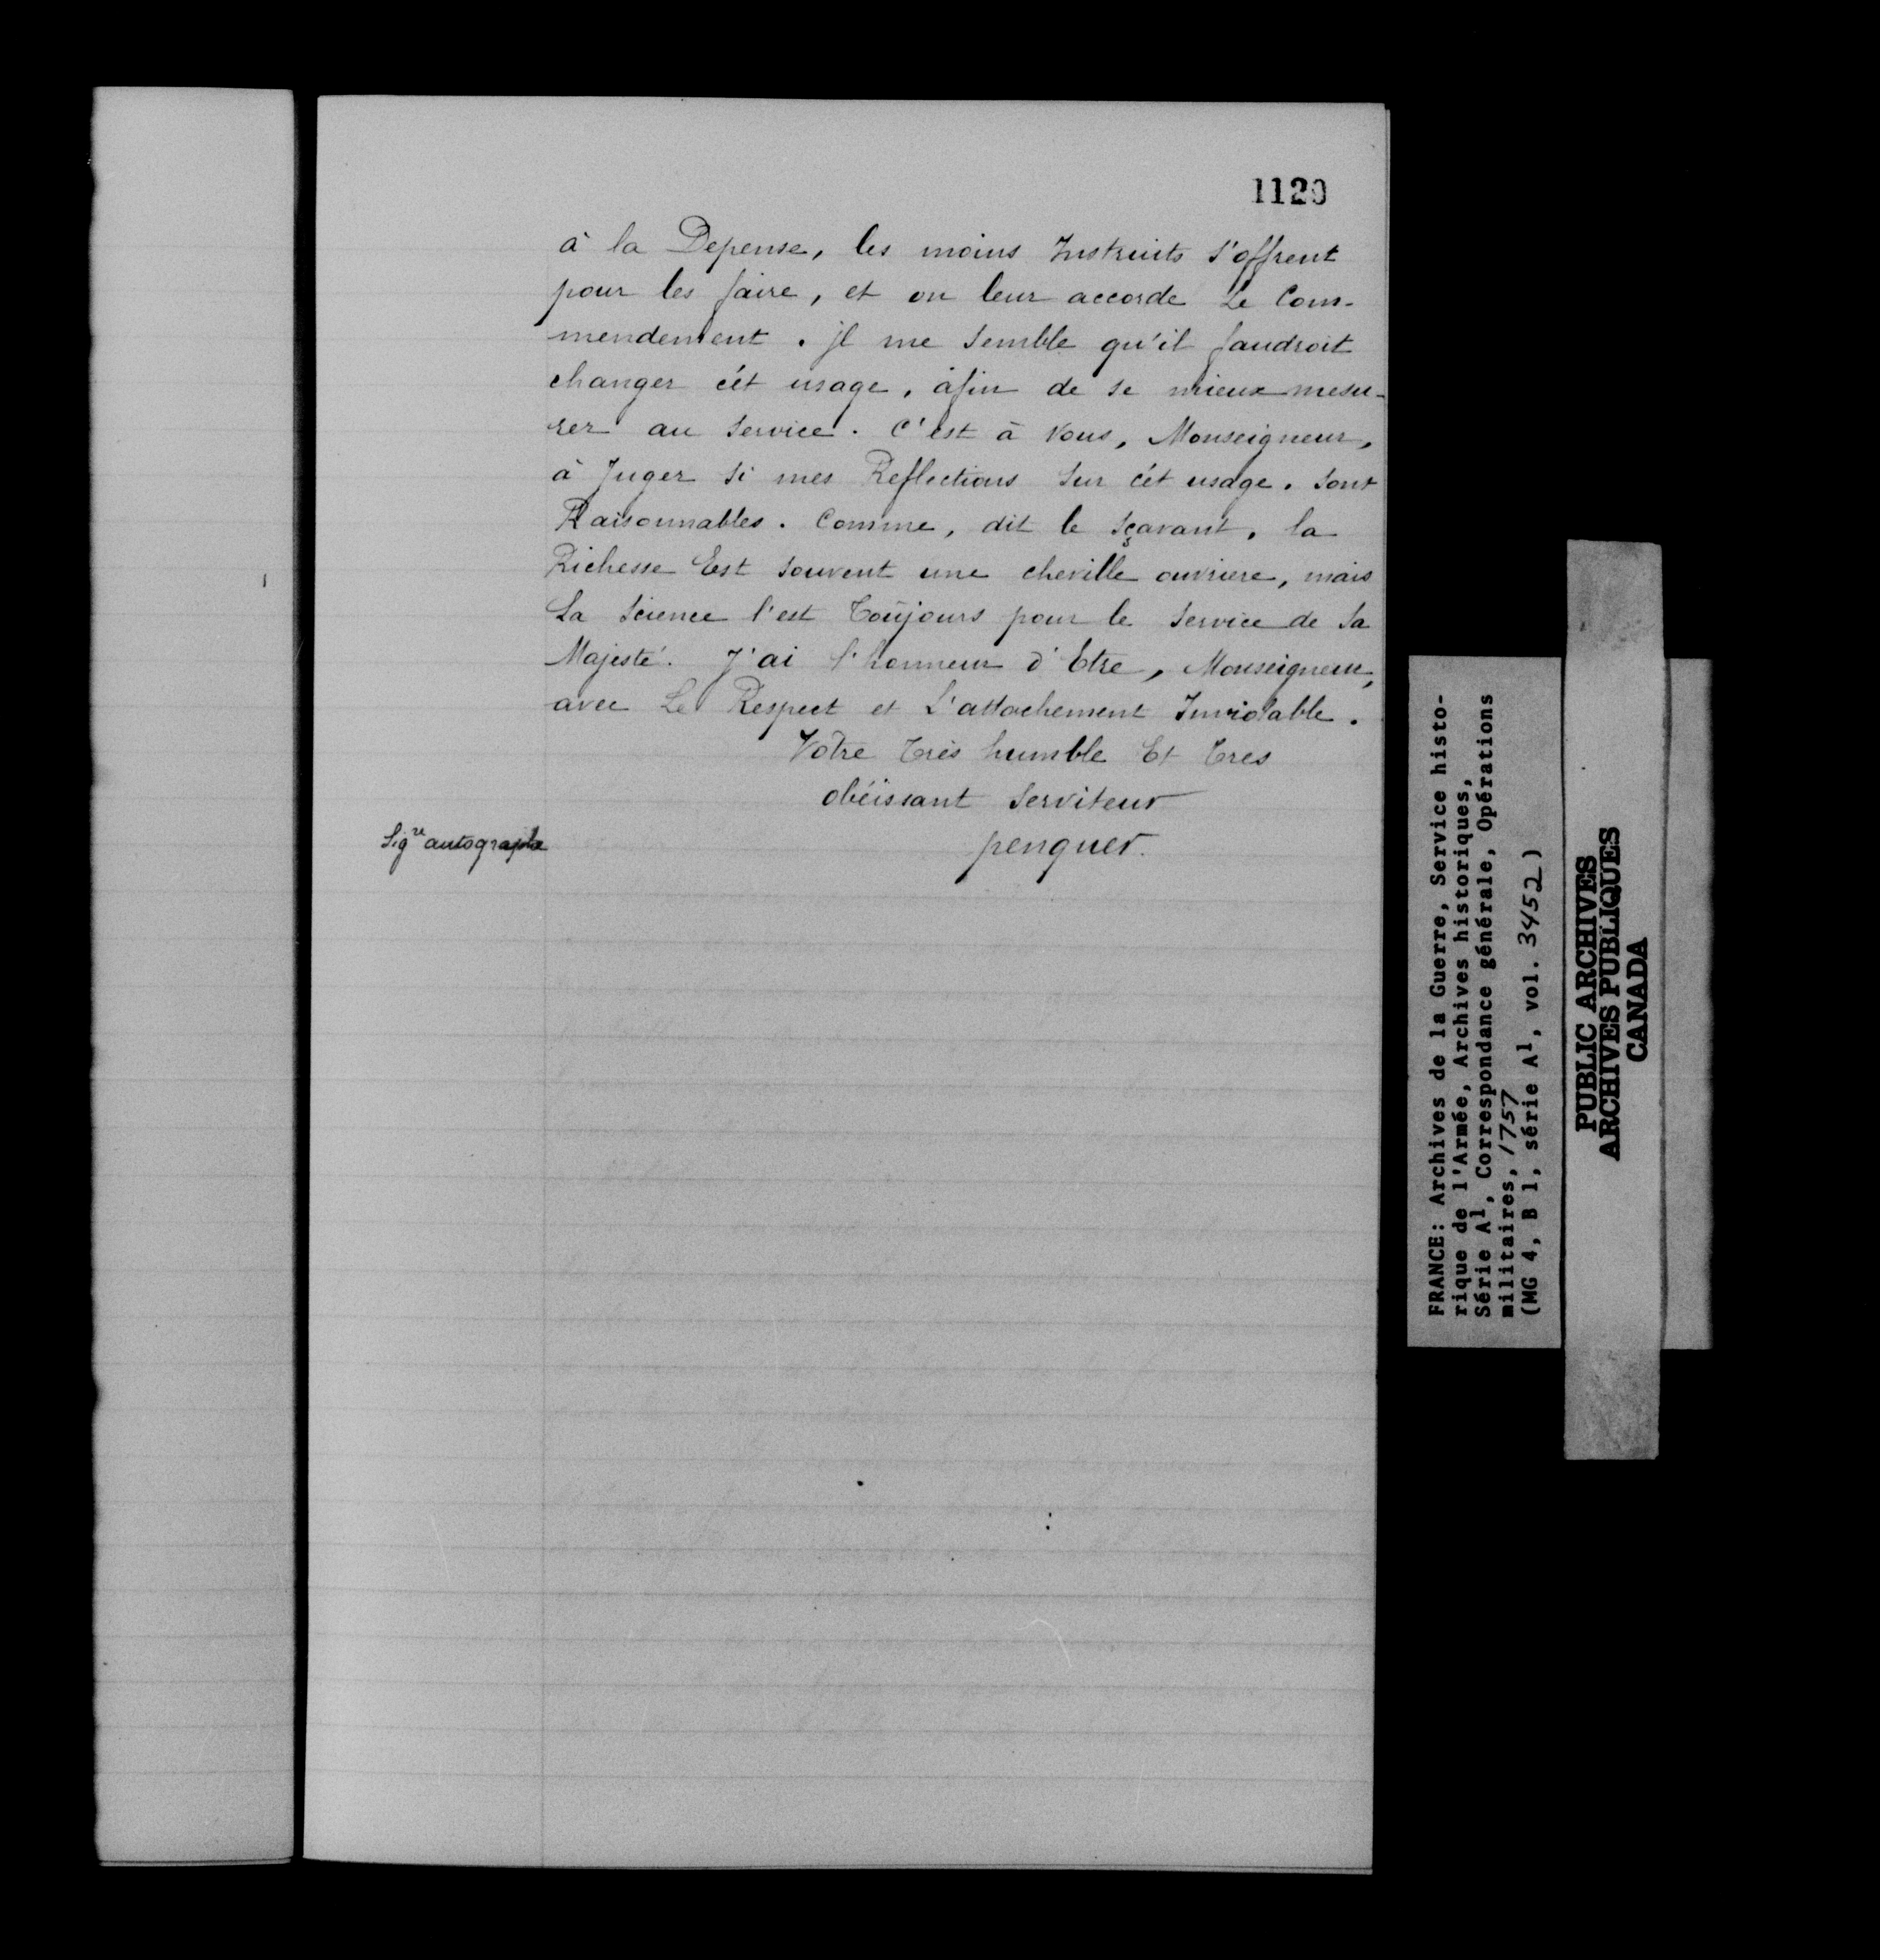 1120
à la Depense, les moins Instruits s'offrent
pour les faire, et on leur accorde Le Com-
mendement. jl me semble qu'il faudroit
changer cét usage, àfin de se mieux mesu-
rer au service. C'est à Vous, Monseigneur,
à Juger si mes Reflections sur cét usage. sont
Raisonnables. Comme, dit le sçavant, la
Richesse Est souvent une cheville ouvriere, mais
La science l'est Toûjours pour le service de sa
Majesté. J'ai l'honneur d'Etre, Monseigneur,
avec Le Respect et L'attachement Inviolable.
Votre Très humble Et Tres
obéissant Serviteur
Sigre autographe
penguer.
FRANCE: Archives de la Guerre, Service histo-
rique de l'Armée, Archives historiques,
Série A1, Correspondance générale, Opérations
militaires, 1757
(MG 4, B 1, série A1, vol. 3452)
PUBLIC ARCHIVES
ARCHIVES PUBLIQUES
CANADA